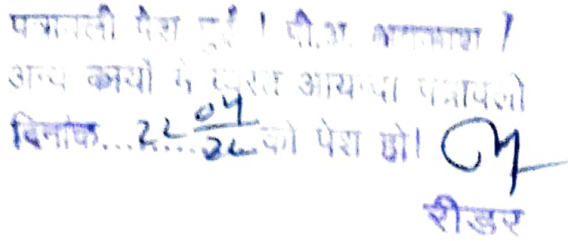 पत्रावली पेश हुई। पी.अ. अवकाश /
अन्य कार्यो मे व्यस्त आयन्दा पत्रावली
दिनांक.....22 04/24 को पेश हो।
रीडर